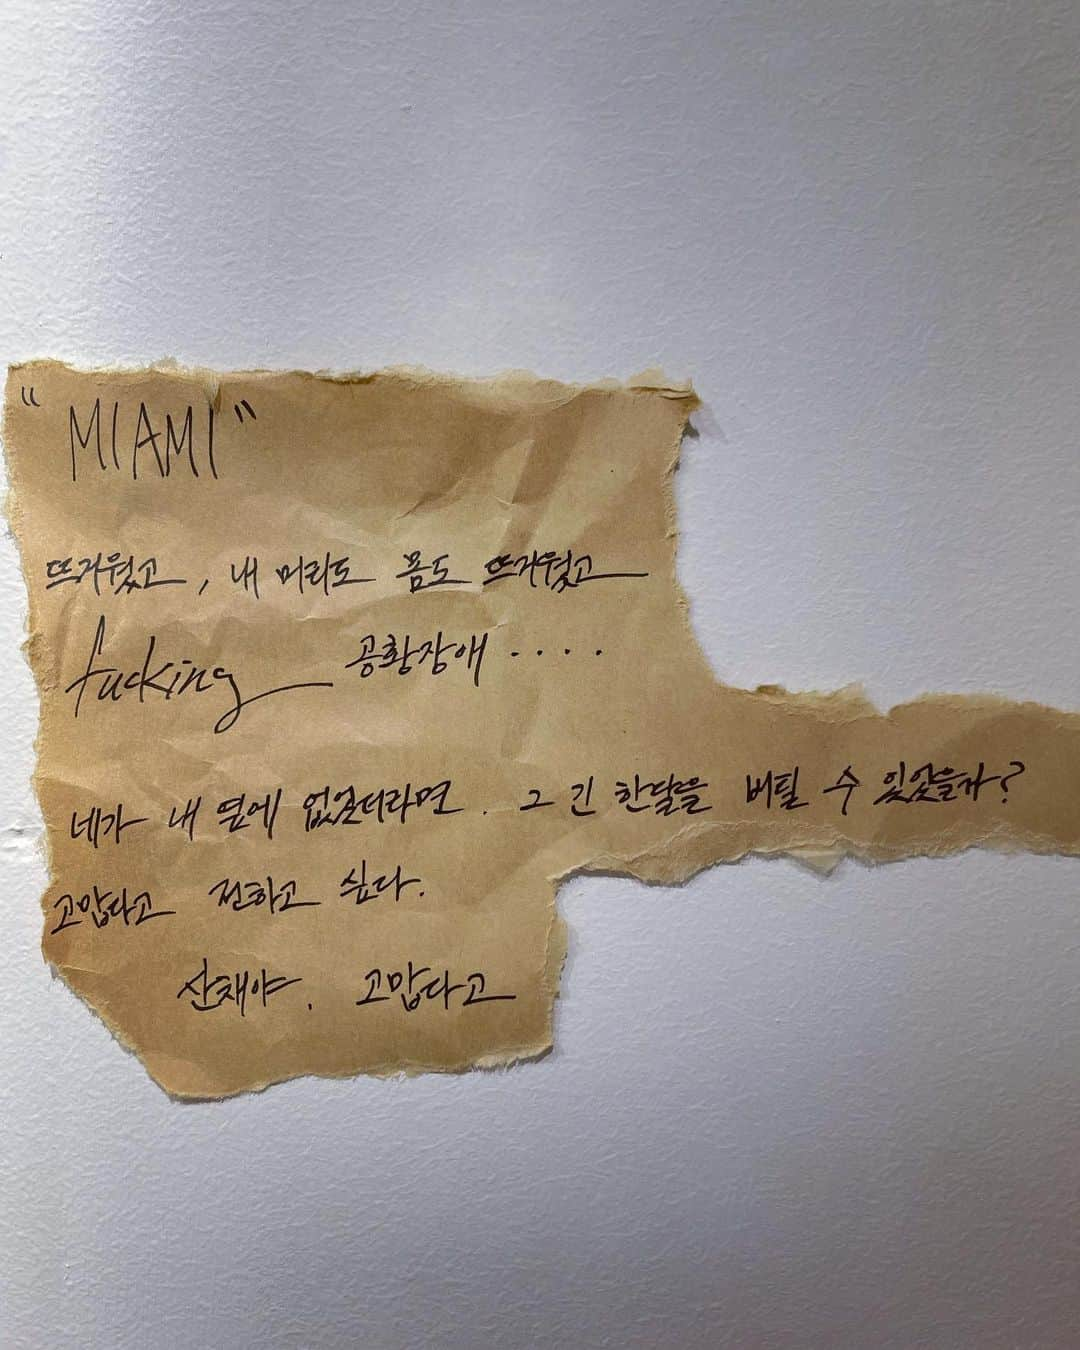 "MIAMI"
뜨거웠고, 내 머리도 몸도 뜨거웠고
fucking 공황장애 ....
네가 내 옆에 없었더라면. 그 긴 한달을 버틸 수 있었을까?
고맙다고 전하고 싶다.
산채야. 고맙다고